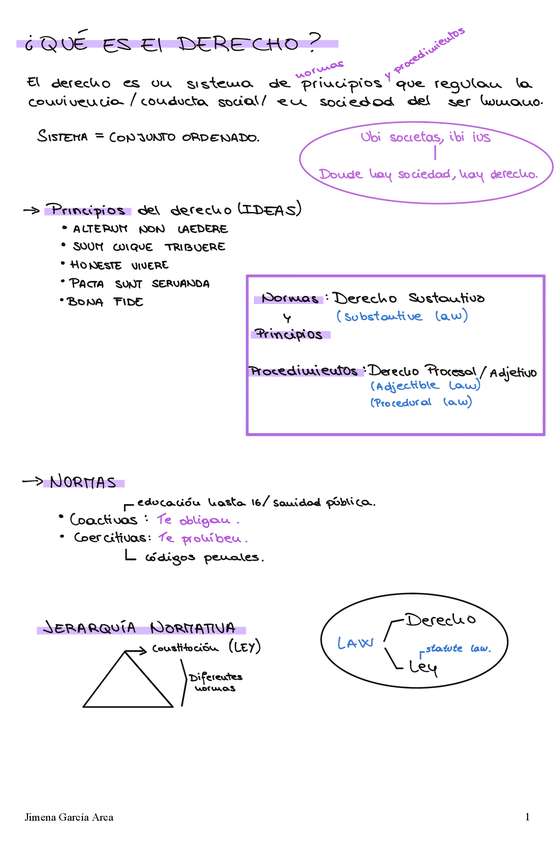 ¿QUÉ ES El DERECHO?
normas y procedimientos
El derecho es un sistema de principios que regulan la
convivencia/conducta social/ en sociedad del ser humano.
SISTEMA = CONJUNTO ORDENADO.
Ubi societas, ibi ius
Donde hay sociedad, hay derecho.
→ Principios del derecho (IDEAS)
• ALTERUM NON LAEDERE
• SUUM CUIQUE TRIBUERE
• HONESTE VIVERE
• PACTA SUNT SERVANDA
• BONA FIDE
Normas : Derecho Sustantivo
y (Substantive law)
Principios
Procedimientos : Derecho Procesal / Adjetivo
(Adjectible law)
(Procedural law)
→ NORMAS
educación hasta 16/ sanidad pública.
• Coactivas : Te obligan.
• Coercitivas: Te prohíben.
códigos penales.
JERARQUÍA NORMATIVA
→ Constitución (LEY)
Diferentes
normas
Derecho
LAW
statute law.
Ley
Jimena García Arca
1